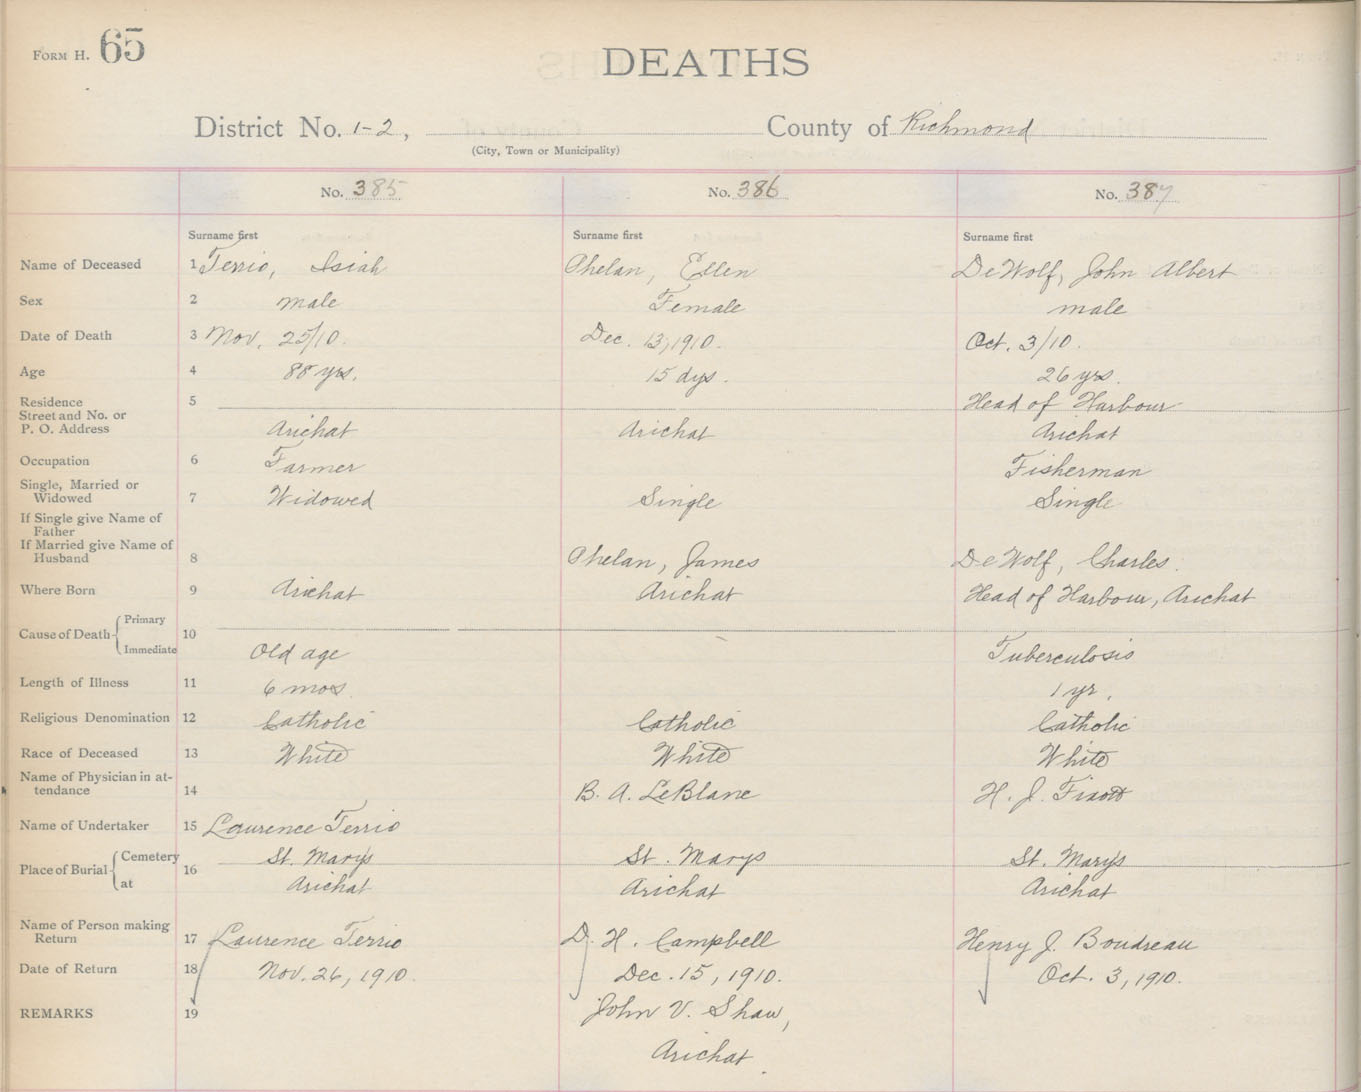 FORM H. 65
DEATHS
District No. 1-2, County of Richmond
(City, Town or Municipality)
No. 385 No. 386 No. 387
Surname first Surname first Surname first
Name of Deceased 1 Terrio, Isiah Phelan, Ellen DeWolf, John Albert
Sex 2 male Female male
Date of Death 3 Nov. 25/10. Dec. 13, 1910. Oct. 3/10.
Age 4 88 yrs. 15 dys. 26 yrs.
Residence 5 Head of Harbour
Street and No. or
P. O. Address Arichat Arichat Arichat
Occupation 6 Farmer Fisherman
Single, Married or
Widowed 7 Widowed Single Single
If Single give Name of
Father
If Married give Name of
Husband 8 Phelan, James DeWolf, Charles.
Where Born 9 Arichat Arichat Head of Harbour, Arichat
Cause of Death Primary 10
Immediate Old age Tuberculosis
Length of Illness 11 6 mos. 1 yr.
Religious Denomination 12 Catholic Catholic Catholic
Race of Deceased 13 White White White
Name of Physician in at-
tendance 14 B. A. LeBlanc H. J. Fixott
Name of Undertaker 15 Laurence Terrio
Place of Burial Cemetery 16 St. Mary's St. Marys St. Mary's
at Arichat Arichat Arichat
Name of Person making
Return 17 Laurence Terrio D. H. Campbell Henry J. Boudreau
Date of Return 18 Nov. 26, 1910. Dec. 15, 1910. Oct. 3, 1910.
REMARKS 19 John V. Shaw,
Arichat.